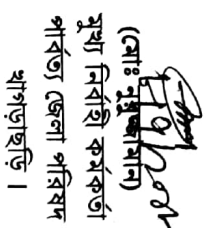 (মোঃ নুরুজ্জামান)
মুখ্য নির্বাহী কর্মকর্তা
পার্বত্য জেলা পরিষদ
খাগড়াছড়ি।